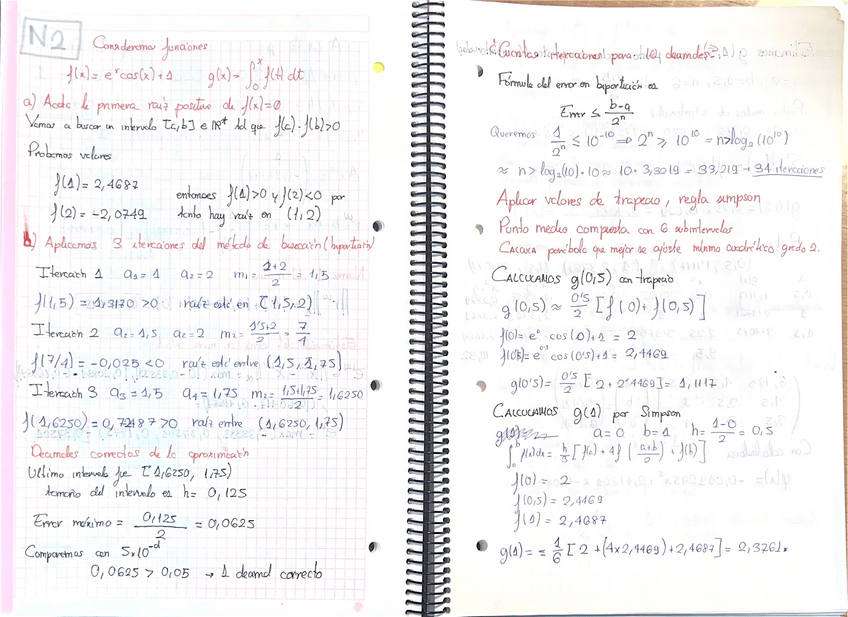 N2
Consideremos funciones
f(x) = eˣ cos(x) + 1    g(x) = ∫₀ˣ f(t) dt
a) Acota la primera raíz positiva de f(x)=0
Vamos a buscar un intervalo [a,b] ∈ ℝ⁺ tal que f(a)·f(b)>0
Probamos valores
f(1) = 2,4687
f(2) = -2,0749
entonces f(1)>0 y f(2)<0 por
tanto hay raíz en (1,2)
b) Aplicamos 3 iteraciones del método de (bipartición)
Iteración 1 a₁ = 1 a₂ = 2 m₁ = (1+2)/2 = 1,5
f(1,5) = 1,3170 >0 : raíz esté en [1,5,2)
Iteración 2 a₂ = 1,5 a₂ = 2 m₂ = (1'5+2)/2 = 7/4
f(7/4) = -0,025 <0 raíz esté entre (1,5, 1,75)
Iteración 3 a₃ = 1,5 a₄ = 1,75 m₂ = (1,5+1,75)/2 = 1,6250
f(1,6250) = 0,72487 >0 raíz entre (1,6250, 1,75)
Decimales correctos de la aproximación
Ultimo intervalo fue [1,6250, 1,75)
tamaño del intervalo es h = 0,125
Error máximo = 0,125/2 = 0,0625
Comparamos con 5x10⁻ᵈ
0,0625 > 0,05 → 1 decimal correcto
¿Cuántas iteraciones para 10 decimales?
Fórmula del error en bipartición es
Error ≤ (b-a)/2ⁿ
Queremos 1/2ⁿ ≤ 10⁻¹⁰ ⇒ 2ⁿ ≥ 10¹⁰ = n>log₂(10¹⁰)
≈ n > log₂(10)·10 ≈ 10·3,3219 = 33,219 → 34 iteraciones
Aplicar valores de trapecio, regla simpson
Punto medio compuesta con 6 subintervalos
Calcula parábola que mejor se ajuste mínimo cuadrático grado 2.
CALCULAMOS g(0,5) con trapecio
g(0,5) ≈ 0'5/2 [f(0) + f(0,5)]
f(0) = e⁰ cos(0)+1 = 2
f(0'5) = e⁰'⁵ cos(0'5)+1 = 2,4469
g(0'5) = 0'5/2 [2 + 2'4469] = 1,1117
CALCULAMOS g(1) por Simpson
a=0 b=1 h = (1-0)/2 = 0,5
∫ f(x)dx = h/3 [f(a) + 4f((a+b)/2) + f(b)]
f(0) = 2
f(0,5) = 2,4469
f(1) = 2,4687
g(1) = ≈ 1/6 [2 + (4x2,4469) + 2,4687] = 2,3761